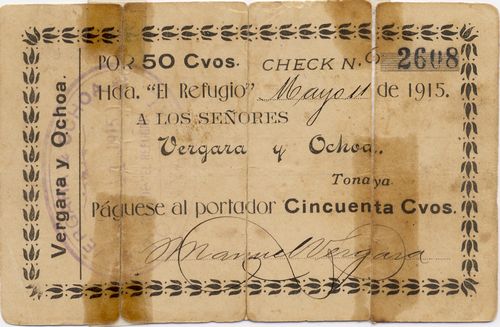 Vergara y Ochoa.
POR 50 Cvos. CHECK N.o 2608
Hda. "El Refugio" Mayo 11 de 1915.
A LOS SEÑORES
Vergara y Ochoa.
Tonaya
Páguese al portador Cincuenta Cvos.
Manuel Vergara